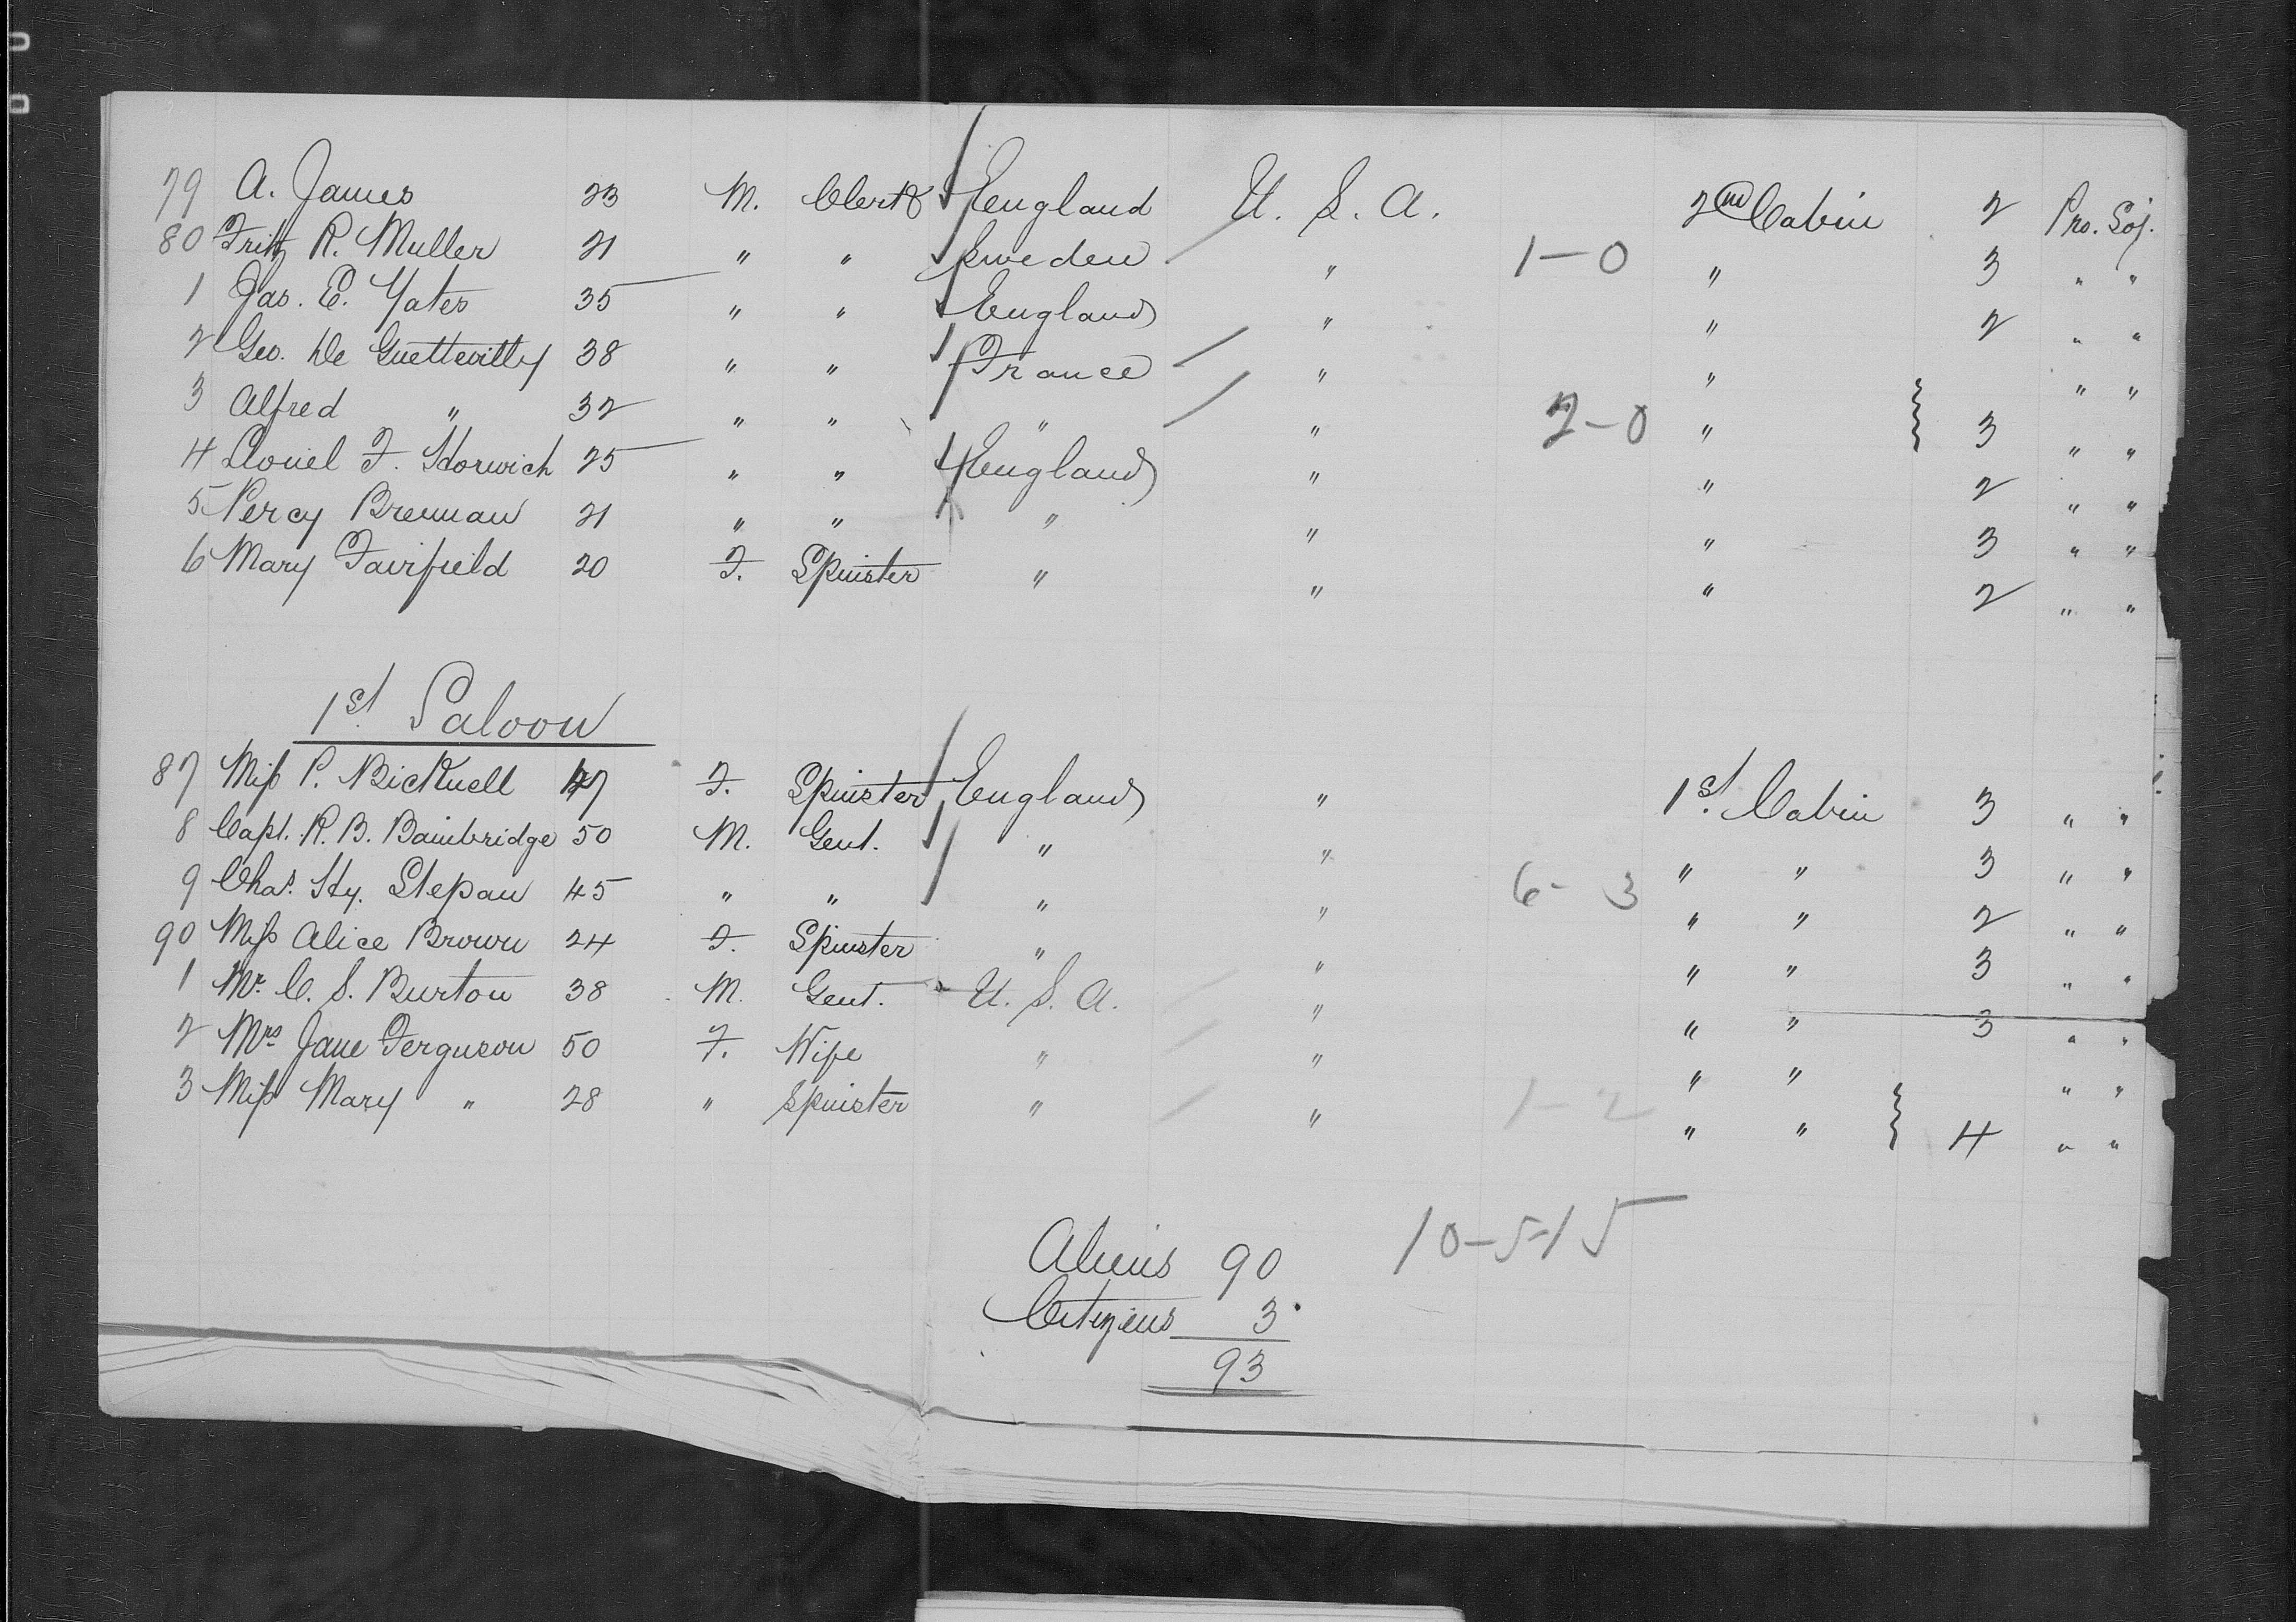 79 A. James 23 M. Clerk England U. S. A. 2nd Cabin 2 Pro. Soj.
80 Fritz R. Muller 21 " " Sweden " 1-0 " 3 " "
1 Jas. E. Yates 35 " " England " " 2 " "
2 Geo. De Guetteville 38 " " France " " " "
3 Alfred " 32 " " " " 2-0 " 3 " "
4 Lionel F. Horwich 25 " " England " " 2 " "
5 Percy Brennan 21 " " " " " 3 " "
6 Mary Fairfield 20 F. Spinster " " " 2 " "
1st Saloon
87 Miss P. Bicknell 47 F. Spinster England " 1st Cabin 3 " "
8 Capt. R. B. Bainbridge 50 M. Gent. " " " " 3 " "
9 Chas. Hy. Stepan 45 " " " " 6-3 " " 2 " "
90 Miss Alice Brown 24 F. Spinster " " " " 3 " "
1 Mr. C. S. Burton 38 M. Gent. U. S. A. " " " 3 " "
2 Mrs Jane Ferguson 50 F. Wife " " " " " "
3 Miss Mary " 28 " Spinster " " 1-2 " " 4 " "
Aliens 90 10-5-15
Citizens 3
93